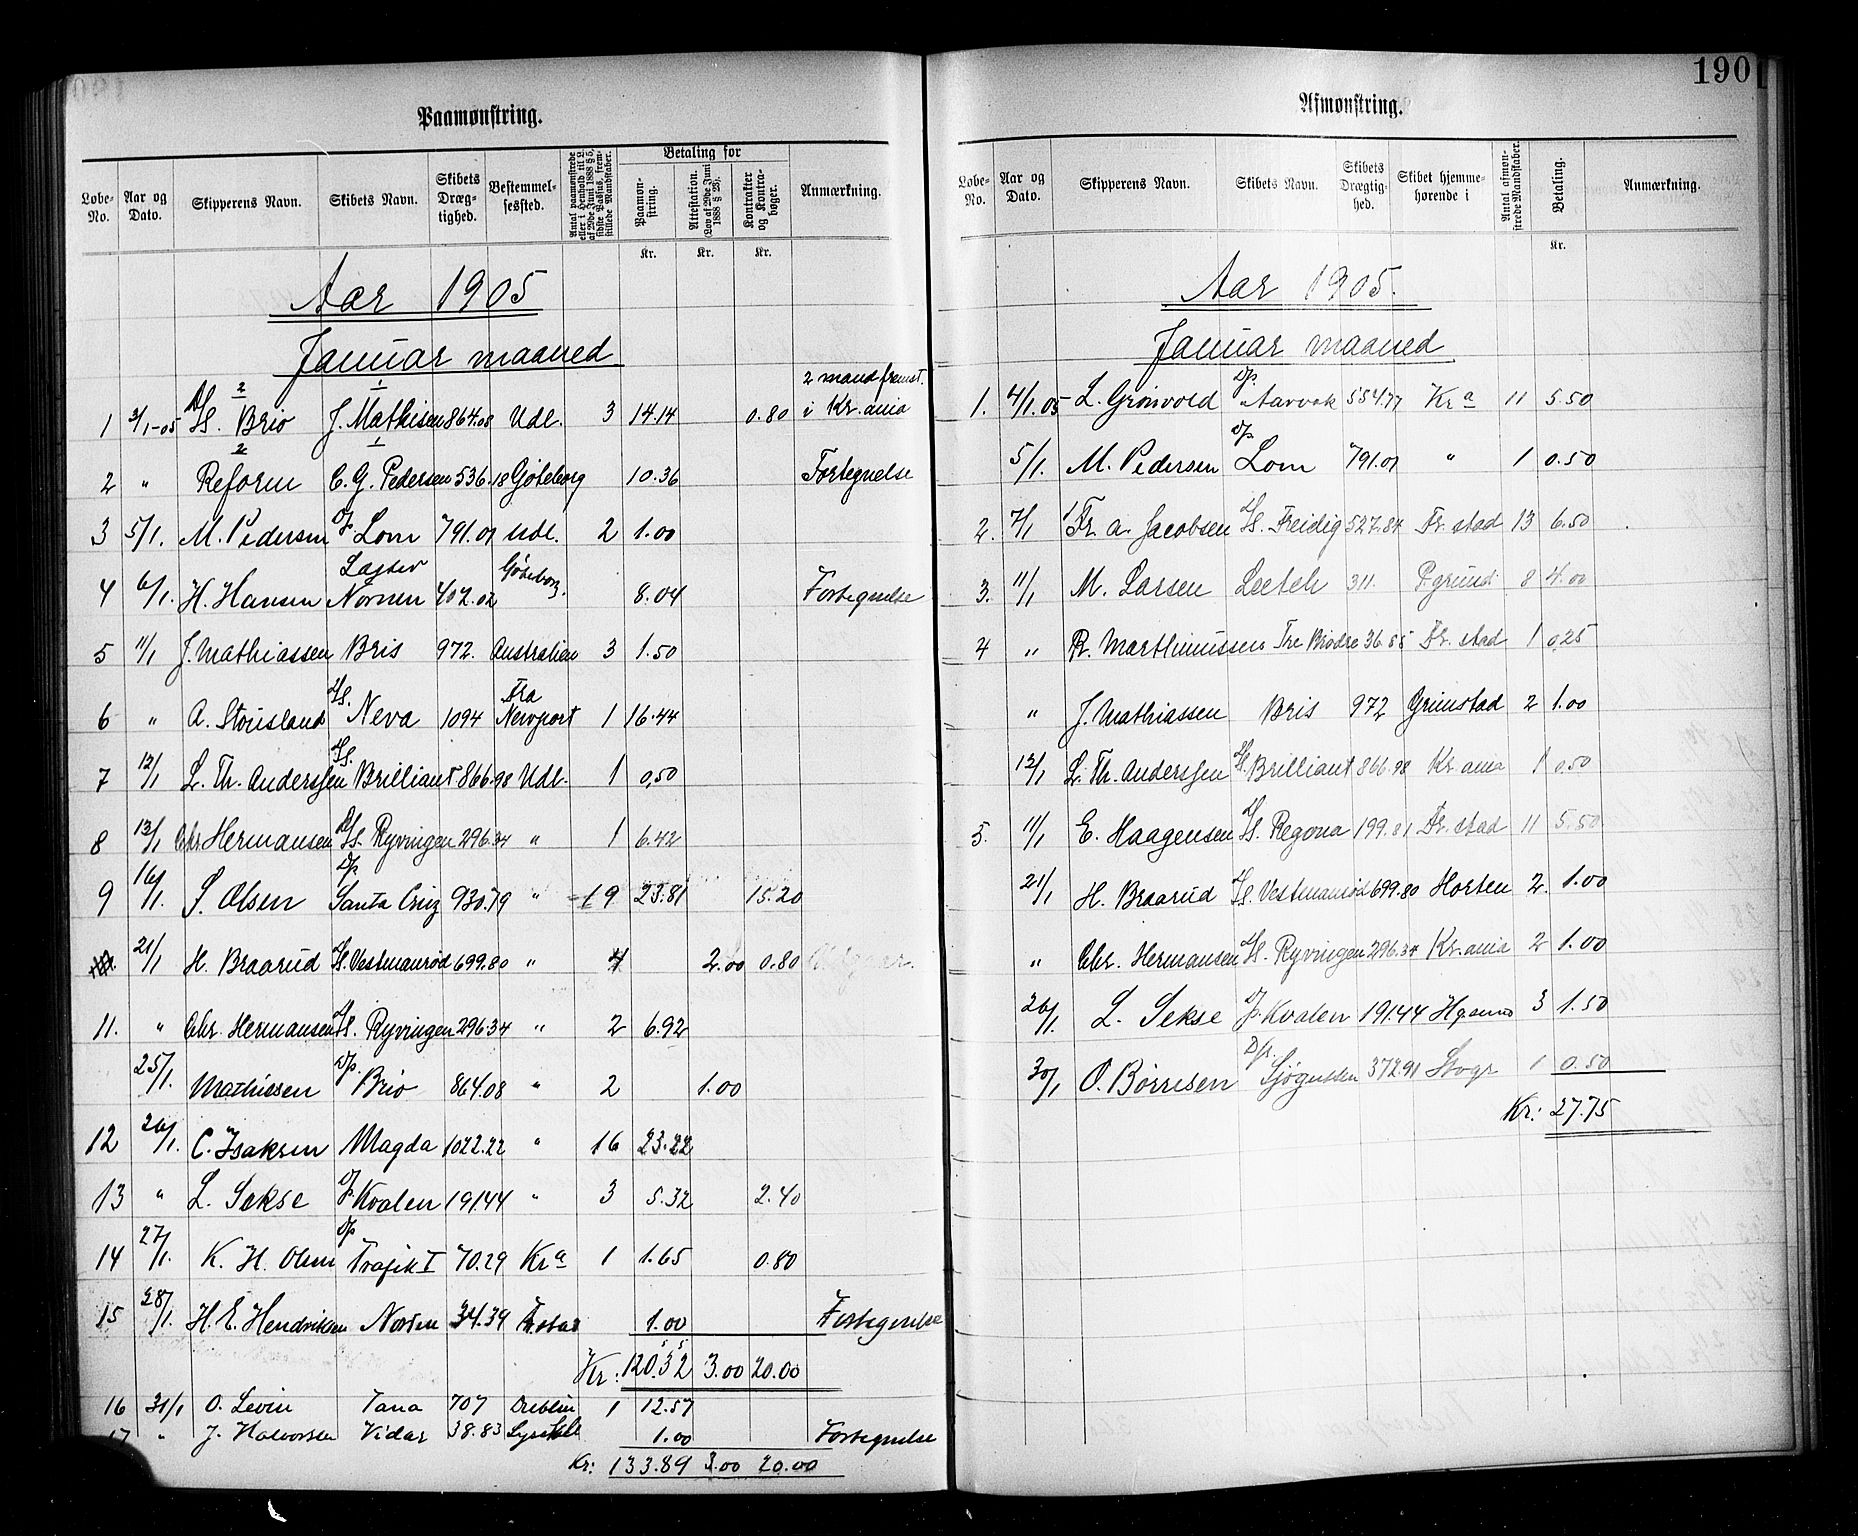 190
Paamønstring.
Løbe-No. | Aar og Dato. | Skipperens Navn. | Skibets Navn. | Skibets Dræg-tighed. | Bestemmel-sessted. | Antal paamønstrede eller i Henhold til L. af 29de Juni 1888 § 5, sidste Passus frem-stillede Mandskaber. | Betaling for | Paamøn-string. Kr. | Attestation. (Lov af 29de Juni 1888 § 23). Kr. | Kontrakter og Kontra-bøger. Kr. | Anmærkning.
Aar 1905
Januar maaned
1 | 3/1-05 | D/S. Brio | J. Mathisen | 864.08 | Udl. | 3 | 14.14 | 0.80 | 2 mand fremst. i Kr.ania
2 | " | Reform | C. G. Pedersen | 536.18 | Göteborg | 10.36 | Fortegnelse
3 | 5/1. | M. Pedersen | D/ Lom | 791.07 | Udl. | 2 | 1.00
4 | 6/1. | H. Hansen | Nornen | 402.02 | Göteborg. | 8.04 | Fortegnelse
5 | 11/1 | J. Mathiassen | Bris | 972. | Australien | 3 | 1.50
6 | " | A. | S/S. Neva | 1094 | Fra Newport | 1 | 16.44
7 | 12/1 | L. Th. Anderssen | S/S. Brilliant | 866.98 | Udl. | 1 | 0,50
8 | 13/1 | Chr. Hermansen | D/S. Ryvingen | 296.34 | " | 1 | 6.42
9 | 16/1. | S. Olsen | D/p Santa Cruz | 930.79 | " | 19 | 23.81 | 15.20
21/1 | H. Braarud | S/S. Vestmanrød | 699.80 | " | 4 | 2.00 | 0.80
11. | " | Chr. Hermansen | S/S. Ryvingen | 296.34 | " | 2 | 6.92
25/1. | Mathisen | D/p. Brio | 864.08 | " | 2 | 1.00
12 | 26/1. | C. Isaksen | Magda | 1022.22 | " | 16 | 23.22
13 | " | L. Sekse | D/ Kvalen | 191.44 | " | 3 | 5.32 | 2.40
14 | 27/1. | K. H. Olsen | D/p Trafik I | 70.29 | Kra | 1 | 1.65 | 0.80
15 | 28/1. | H. E. Hendriksen | 34.39 | 1.00 | Fortegnelse
Kr: 120.32 | 3.00 | 20.00
16 | 31/1 | O. Levin | Tana | 707 | Dublin | 1 | 12.57
17 | " | J. Halvorsen | Vidar | 38.83 | Lysekil | 1.00 | Fortegnelse
Kr: 133.89 | 3.00 | 20.00
Afmønstring.
Løbe-No. | Aar og Dato. | Skipperens Navn. | Skibets Navn. | Skibets Drægtig-hed. | Skibet hjemme-hørende i | Antal afmøn-strede Mandskaber. | Betaling. Kr. | Anmærkning.
Aar 1905.
Januar maaned
1. | 4/1.05 | L. Grönvold | D/p. Aarvak | 554.77 | Kra | 11 | 5.50
5/1. | M. Pedersen | D/p. Lom | 791.07 | " | 1 | 0.50
2. | 7/1 | Fr. A. Jacobsen | S/S. Freidig | 527.84 | Fr. stad | 13 | 6.50
3. | 11/1 | M. Larsen | 311. | P.grund | 8 | 4.00
4 | " | R. Marthinussen | Tre Brødre | 36.85 | Fr. stad | 1 | 0,25
" | J. Mathiassen | Bris | 972 | Grimstad | 2 | 1.00
12/1 | L. Th. Anderssen | S/S. Brilliant | 866.98 | Kr.ania | 1 | 0.50
5. | 11/1 | E. Haagensen | S/S. Regona | 199.81 | Fr. stad | 11 | 5.50
21/1 | H. Braarud | S/S. Vestmanrød | 699.80 | Horten | 2. | 1.00
" | Chr. Hermansen | S/S. Ryvingen | 296.34 | Kr.ania | 2 | 1.00
26/1. | L. Sekse | D/ Kvalen | 191.44 | 3 | 1.50
30/1 | O. Børresen | D/p. | 372.91 | 1 | 0.50
Kr: 27.75